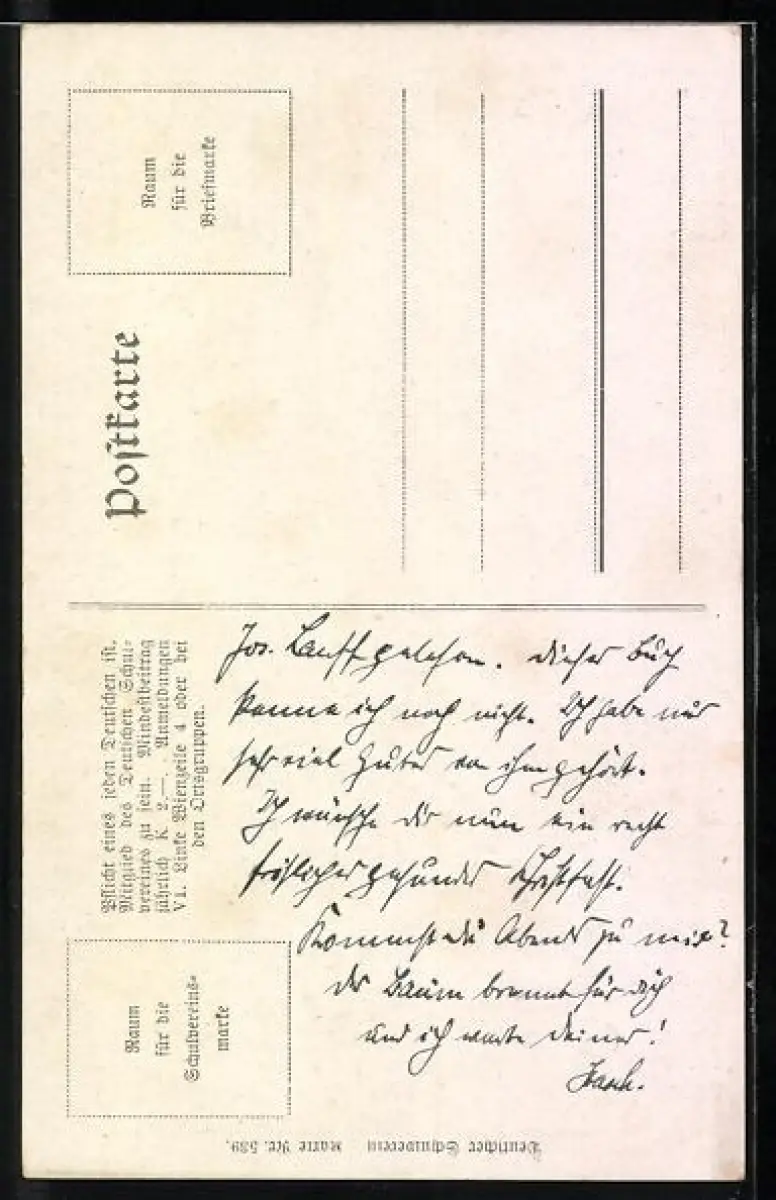 Postkarte
Raum
für die
Briefmarke
Pflicht eines jeden Deutschen ist,
Mitglied des Deutschen Schul-
vereines zu sein. Mindestbeitrag
jährlich K 2.—. Anmeldungen
VI. Linke Wienzeile 4 oder bei
den Ortsgruppen.
Raum
für die
Schulvereins-
marke
Jos. Lauff gelesen. Dieses Buch
kenne ich noch nicht. Ich habe nur
sehr viel Gutes von ihm gehört.
Ich wünsche dir nun ein recht
fröhliches gesundes Christfest.
Kommst du Abends zu mir?
Der Baum brennt für dich
und ich warte deiner!
Deutscher Schulverein Karte Nr. 539.